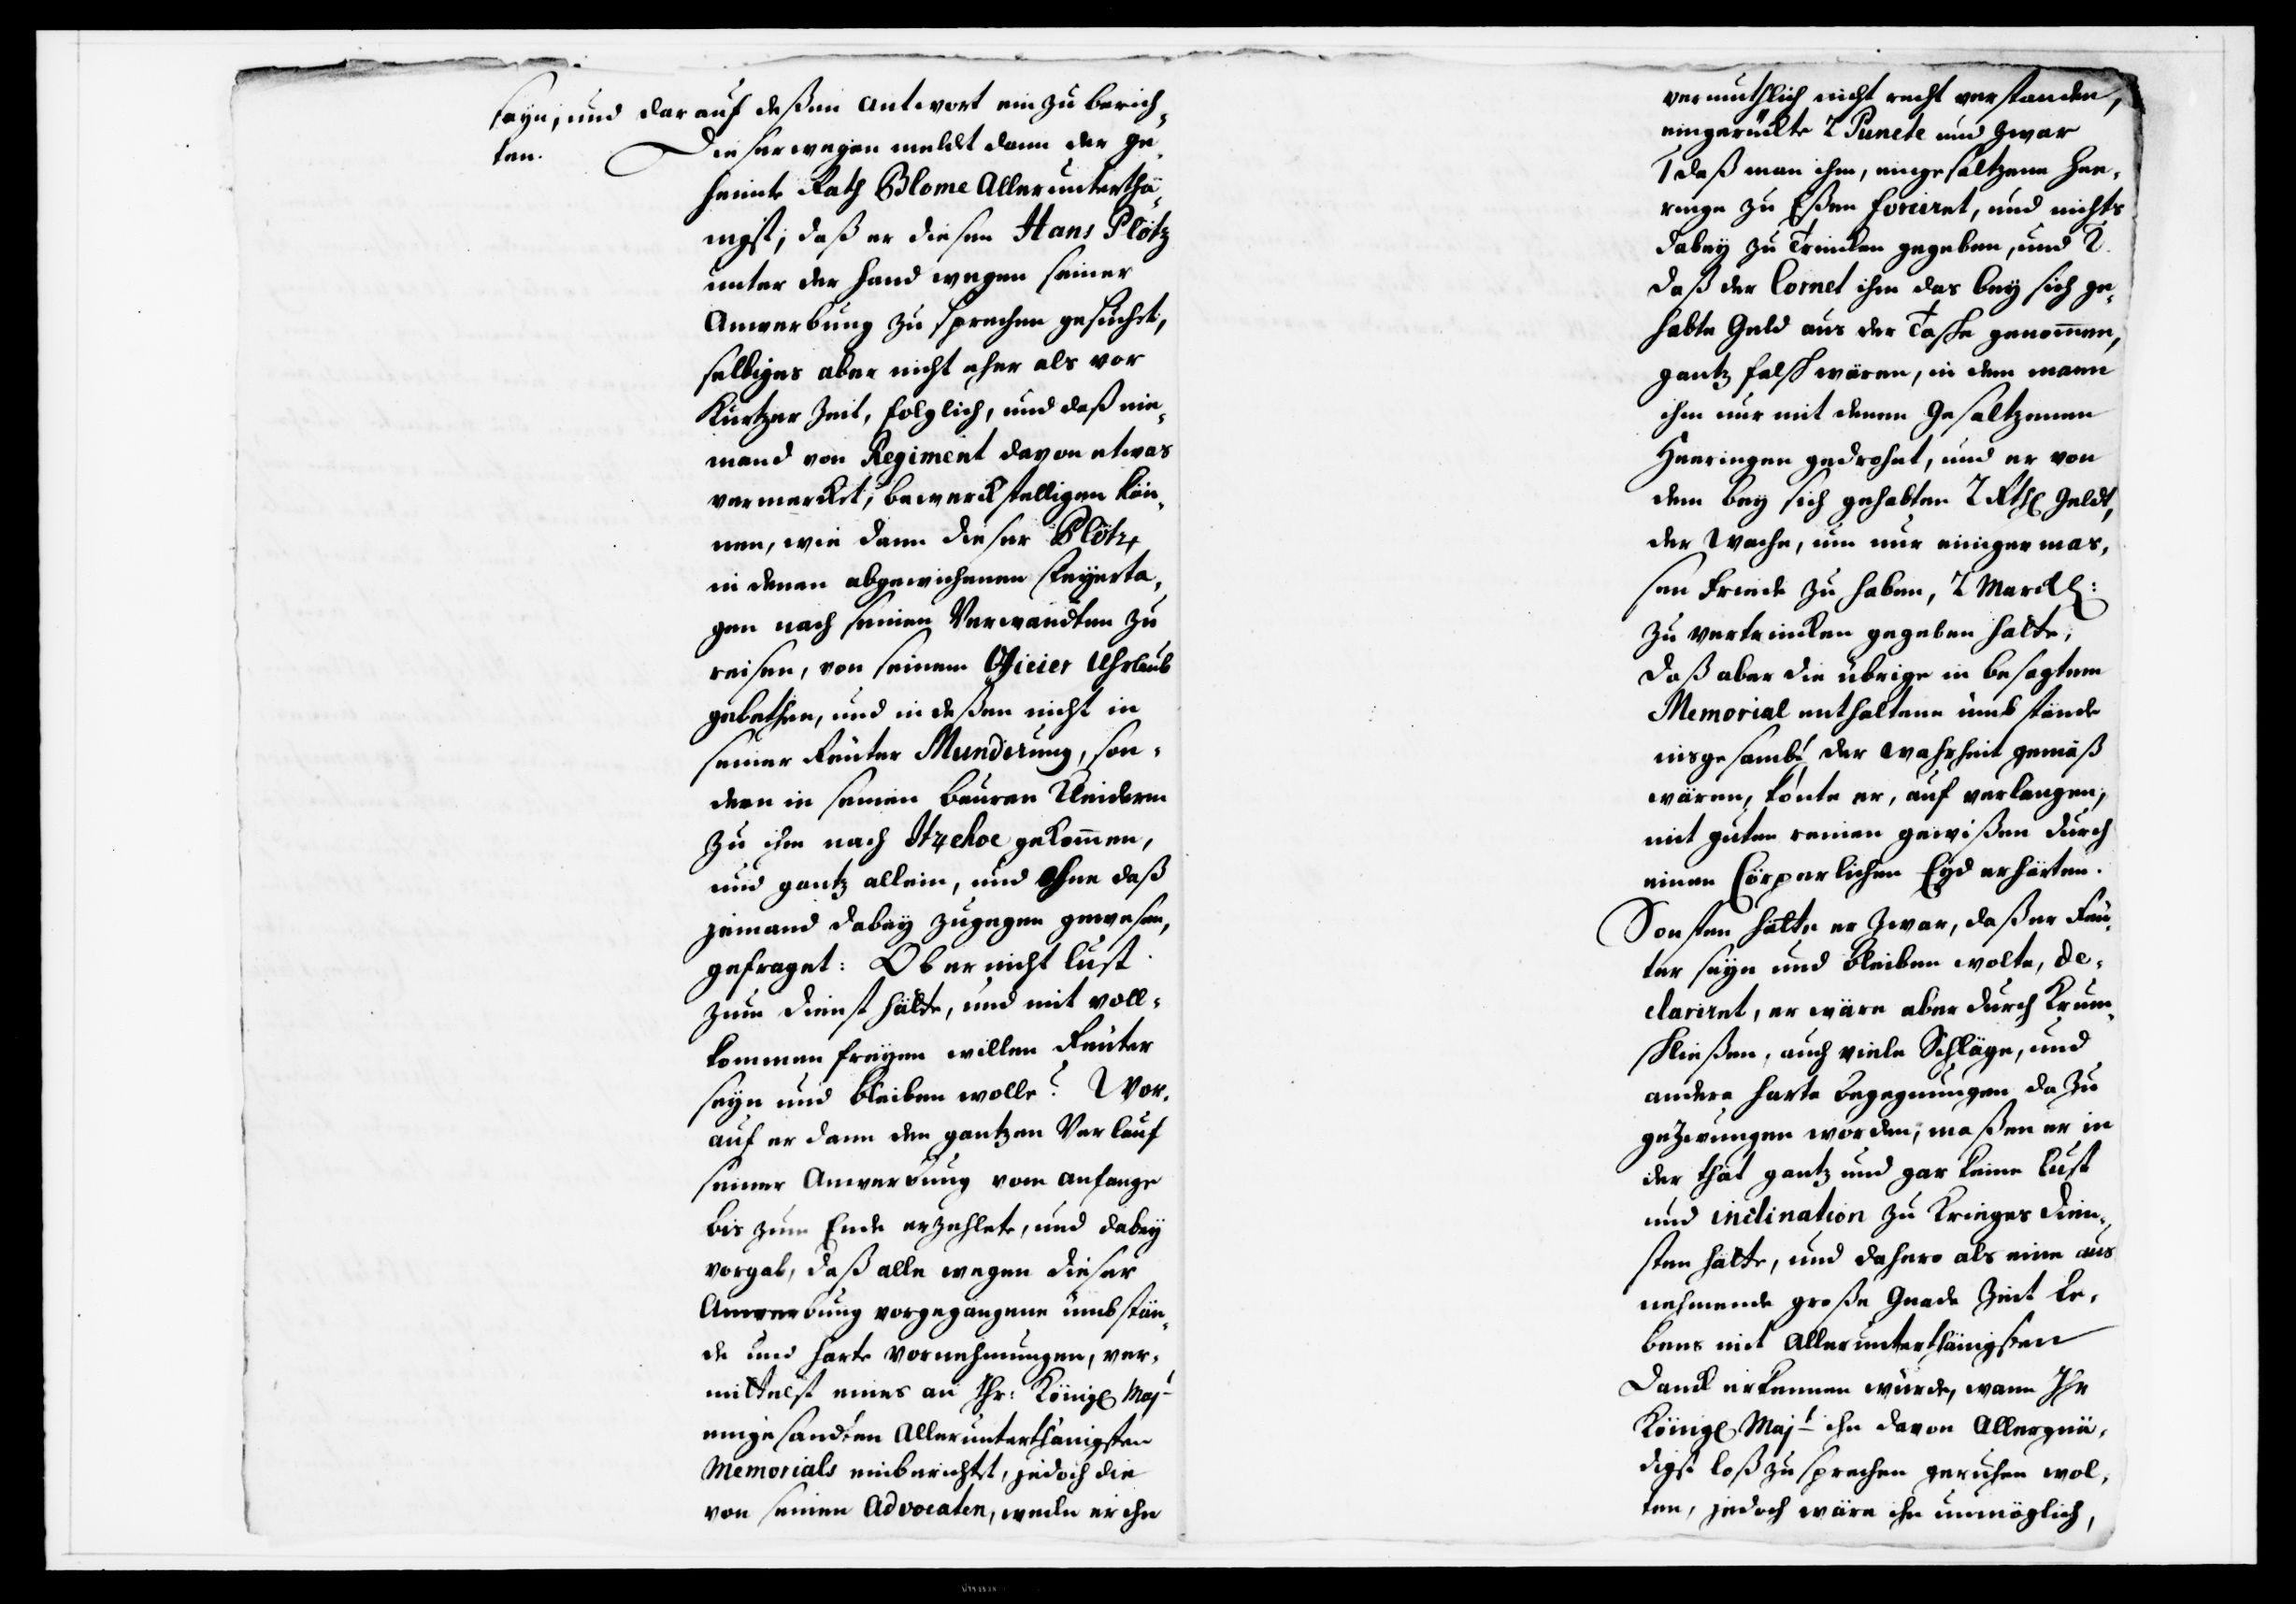 seyn, und darauf deßen Antwort ein zu berich¬
ten. Dieserwegen meldet dann der Ge¬
heimte Rath Blome Allerunterthä¬
nigst, daß er diesen Hans Plötz
unter der Hand wegen seiner
Anwerbung zu sprechen gesuchet,
selbiges aber nicht eher als vor
Kurtzer Zeit, folglich, und daß nie¬
mand von Regiment davon etwas
vermercket, bewerckstelligen kön¬
nen, wie dann dieser Plötz
in denen abgewichenen Feyerta¬
gen nach seinen Verwandten zu
reisen, von seinem Officier Uhrlaub
gebethen, und in deßen nicht in
seiner Reuter Mundirung, son¬
dern in seinen Bauren Kleidern
zu ihm nach Itzehoe gekom̅en,
und gantz allein, und ohne daß
jemand dabey zugegen gewesen,
gefraget: Ob er nicht Lust
zum Dienst hätte, und mit voll¬
kommen freyen willen Reuter
seyn und bleiben wolle? Wor¬
auf er dann den gantzen Verlauf
seiner Anwerbung vom Anfange
bis zum Ende erzehlete, und dabey
vorgab, daß alle wegen dieser
Anwerbung vorgegangene umbstän¬
de und harte Vornehmungen, ver¬
mittelst eines an Ihr: Königl Majt
eingesandten Allerunterthänigsten
Memorials einberichtet, jedoch die
von seinen Advocaten, welche er ihn
vermuthlich nicht recht verstanden,
eingerückte 2 Puncte und Zwar
1 daß man ihm, eingesaltzene Hee¬
ringe zu Eßen forciret, und nichts
dabey zu Trincken gegeben, und 2.
daß der Cornet ihm das bey sich ge¬
habte Geld aus der Tasche genom̅en,
gantz falsch wären, in dem mann
ihm nur mit denen Gesaltzenen
Heeringen gedrohet, und er von
dem bey sich gehabten 2 Rthl Geldt,
der Wache, um nur einiger mas¬
sen Friede zu haben, 2 Marckl:
zu vertrincken gegeben hatte,
daß aber die übrige in besagtem
Memorial enthaltene umbstände
insgesambt der Wahrheit gemäß
wären, könte er, auf verlangen,
mit guten reinen gewißen durch
einen Cörperlichen Eyd erhärten.
Sonsten hätte er Zwar, daß er Reu¬
ter seyn und bleiben wolte, de¬
clariret, er wäre aber durch Krum¬
schließen, auch viele Schläge, und
andere harte begegnungen da zu
gezwungen worden, maßen er in
der that gantz und gar keine Lust
und inclination zu Krieges Dien¬
sten hätte, und dahero als eine aus
nehmende große Gnade Zeit Le¬
bens mit Allerunterthänigsten
Danck erkennen würde, wann Ihr
Königl Majt ihn davon Allergnä¬
digst loß zu sprechen geruhen wol¬
ten, jedoch wäre ihn unmöglich,